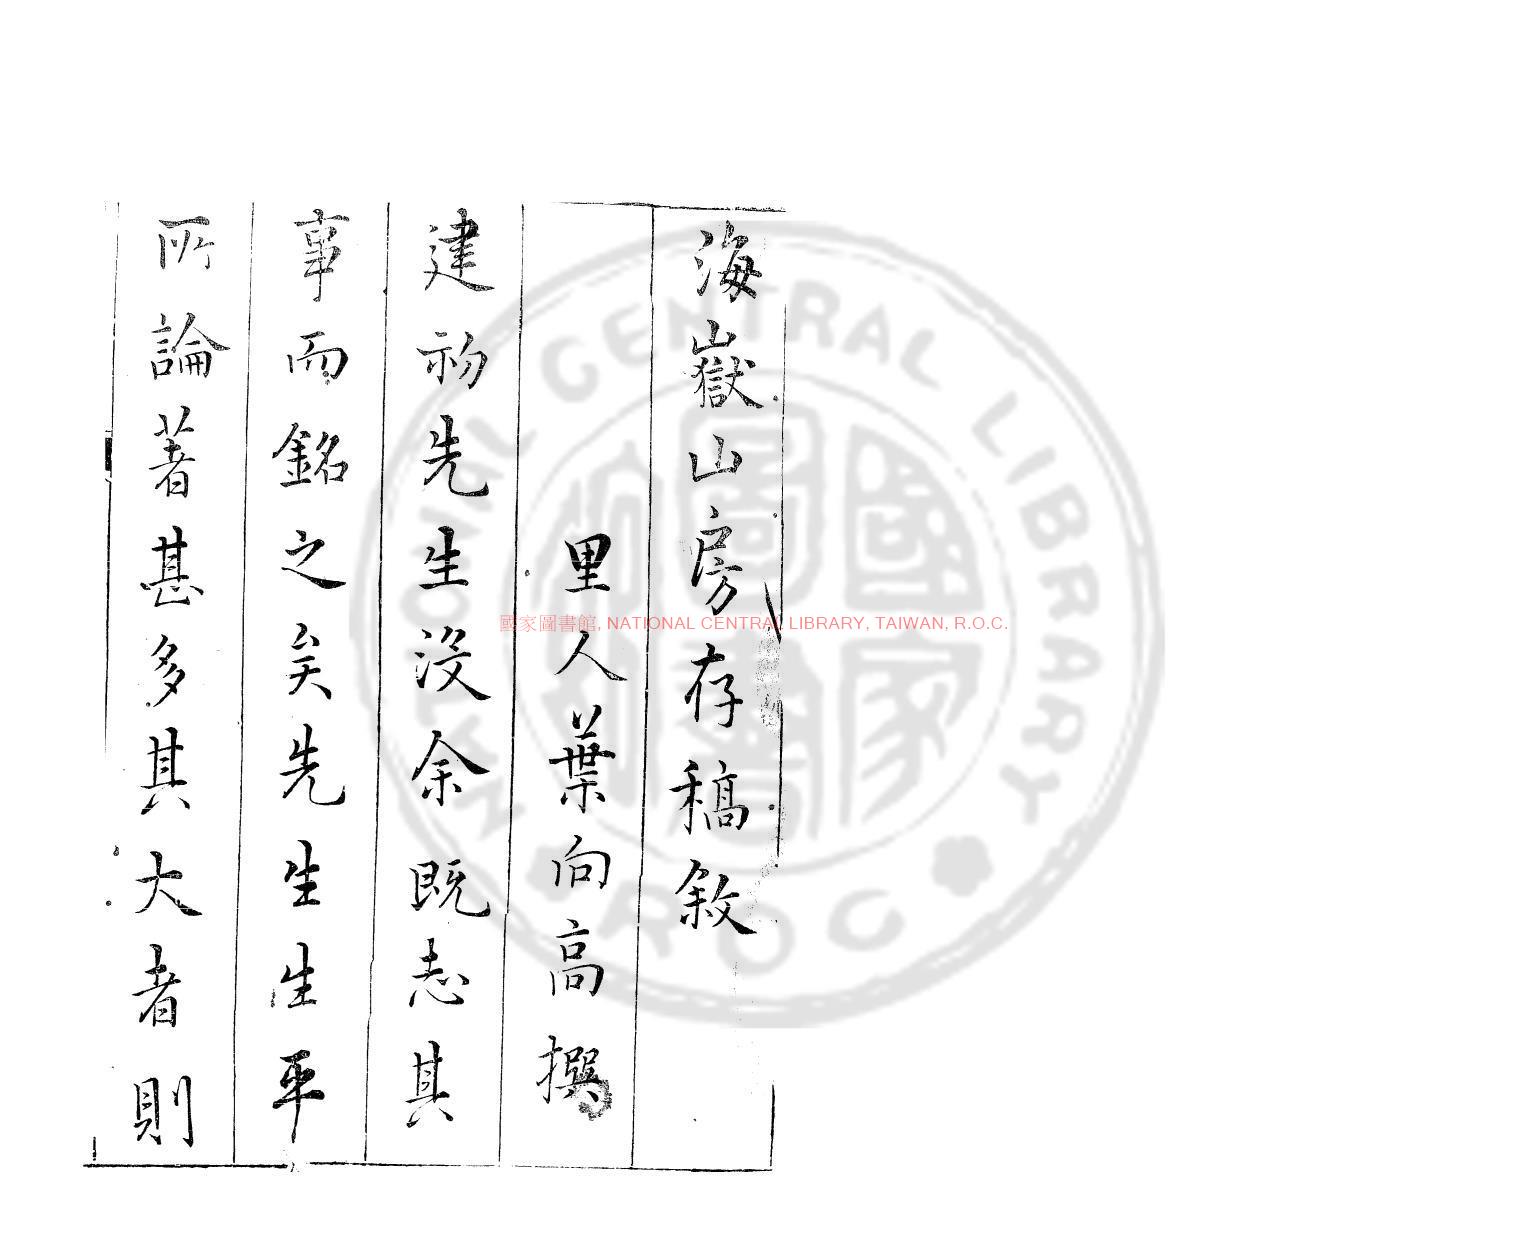 海嶽山房存稿敘
里人葉向高撰
建初先生沒余既志其
事而銘之矣先生生平
所論著甚多其大者則
國家圖書館, NATIONAL CENTRAL LIBRARY, TAIWAN, R.O.C.
NATIONAL CENTRAL LIBRARY
R O C
國家圖書